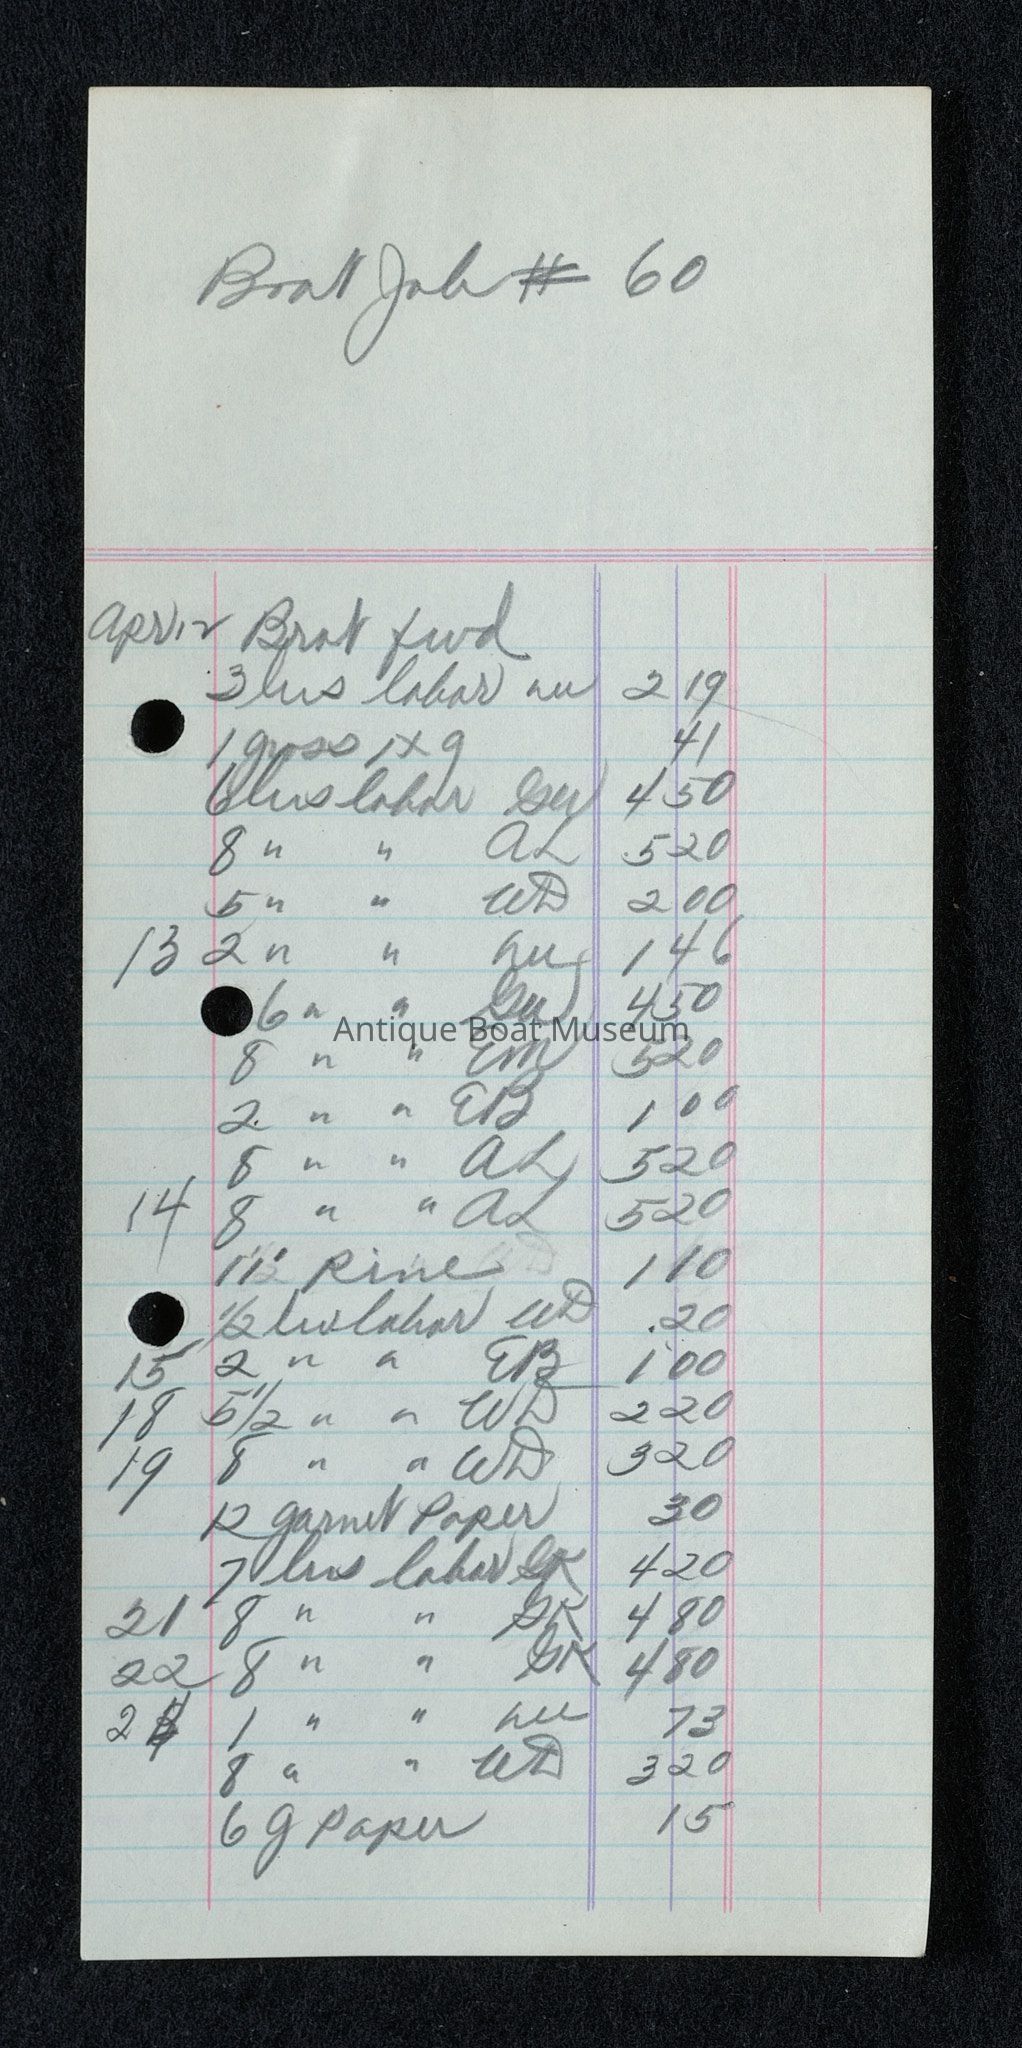 Boat Job # 60
Apr 12 Brot fwd
3 hrs labor 2 19
1 gross 1x9 41
6 hrs labor GW 4 50
8 " " AL 5 20
5 " " WD 2 00
13 2 " " 1 46
6 " " GW 4 50
Antique Boat Museum
8 " " EM 5 20
2 " " EB 1 00
8 " " AL 5 20
14 8 " " AL 5 20
11' Pine 1 10
1/2 hr labor WD .20
15 2 " " EB 1 00
18 5 1/2 " " WD 2 20
19 8 " " WD 3 20
12 garnet Paper 30
7 hrs labor GK 4 20
21 8 " " GK 4 80
22 8 " " GK 4 80
24 1 " " 73
8 " " WD 3 20
6 g paper 15